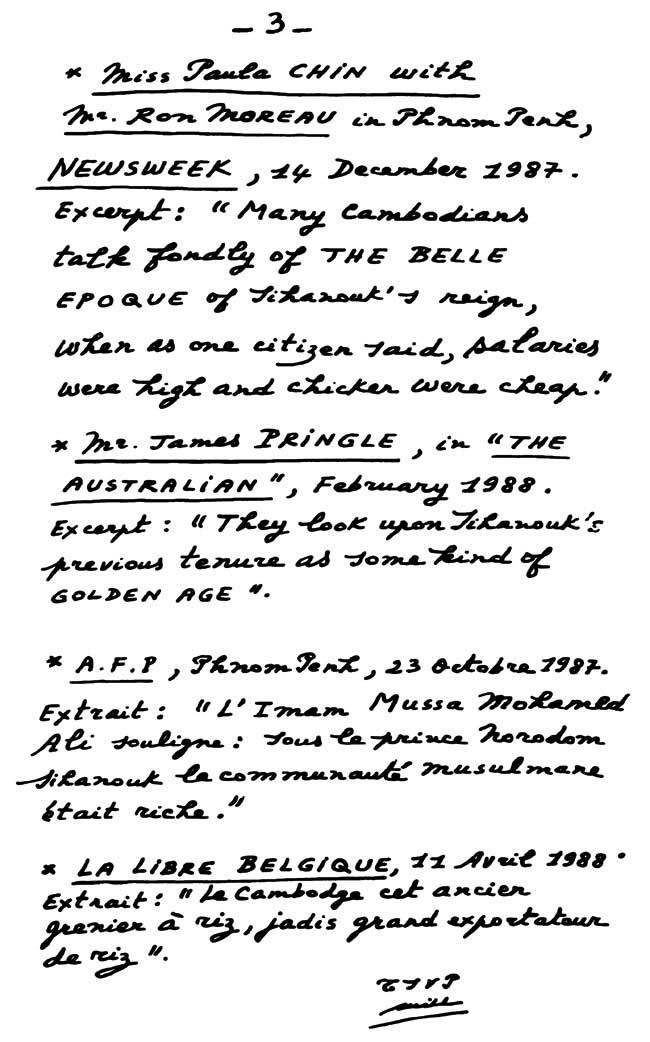 - 3 -
* Miss Paula CHIN with
Mr. Ron MOREAU in Phnom Penh,
NEWSWEEK, 14 December 1987.
Excerpt: "Many Cambodians
talk fondly of THE BELLE
EPOQUE of Sihanouk's reign,
when as one citizen said, salaries
were high and chicken were cheap."
* Mr. James PRINGLE, in "THE
AUSTRALIAN", February 1988.
Excerpt: "They look upon Sihanouk's
previous tenure as some kind of
GOLDEN AGE".
* A.F.P, Phnom Penh, 23 Octobre 1987.
Extrait: "L'Imam Mussa Mohamed
Ali souligne: sous le prince Norodom
Sihanouk la communauté musulmane
était riche."
* LA LIBRE BELGIQUE, 11 Avril 1988.
Extrait: "Le Cambodge cet ancien
grenier à riz, jadis grand exportateur
de riz".
TSVP